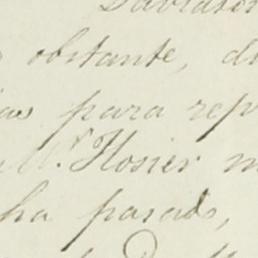 obstante, d
as para rep
Mr. Hosier m
ha parado,